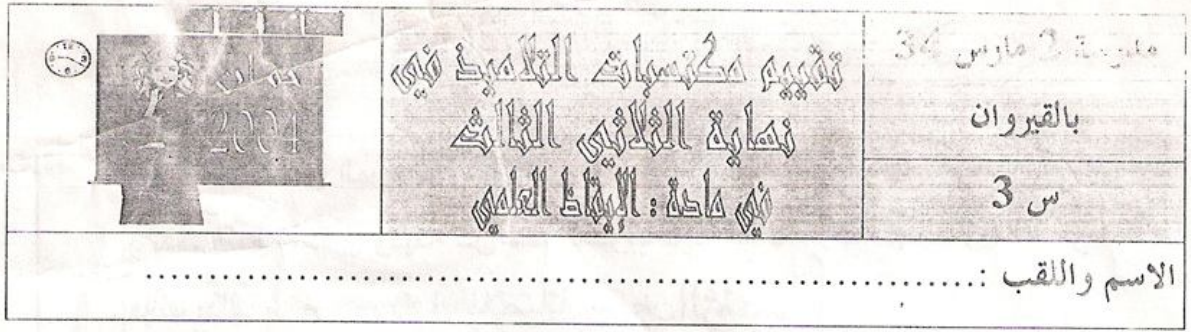 مدرسة 2 مارس 34
بالقيروان
س 3
تقييم مكتسبات التلاميذ في
نهاية الثلاثي الثالث
في مادة : الإيقاظ العلمي
جوان
2004
الاسم واللقب :